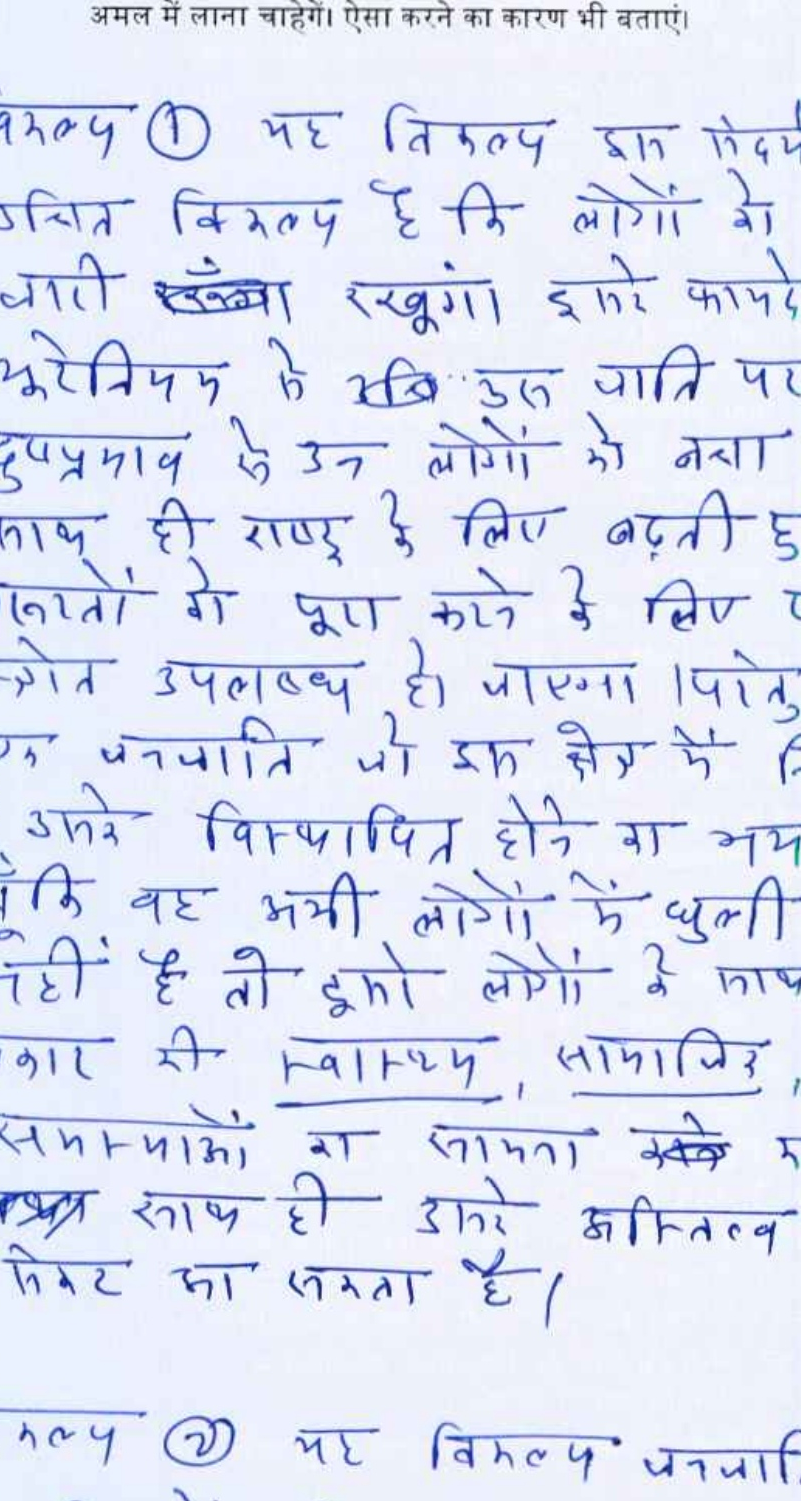 अमल में लाना चाहेगें। ऐसा करने का कारण भी बताएं।
विकल्प ① यह विकल्प इस संदर्भ
उचित विकल्प है कि लोगों को
जारी रखूंगा इसके फायदे
यूरेनियम के उस जाति पर
दुष्प्रभाव से उन लोगों को बचा
साथ ही राष्ट्र के लिए बढ़ती हु
जरूरतों को पूरा करने के लिए ए
स्त्रोत उपलब्ध हो जाएगा। परंतु
एक जनजाति जो इस क्षेत्र में नि
उसके विस्थापित होने का भय
चूँकि वह अभी लोगों में घुली
नहीं है तो दूसरे लोगों के साथ
कार की स्वास्थ्य, सामाजिक,
समस्याओं का सामना क
साथ ही उसके अस्तित्व
संकट आ सकता है।
कल्प ② यह विकल्प जनजाति